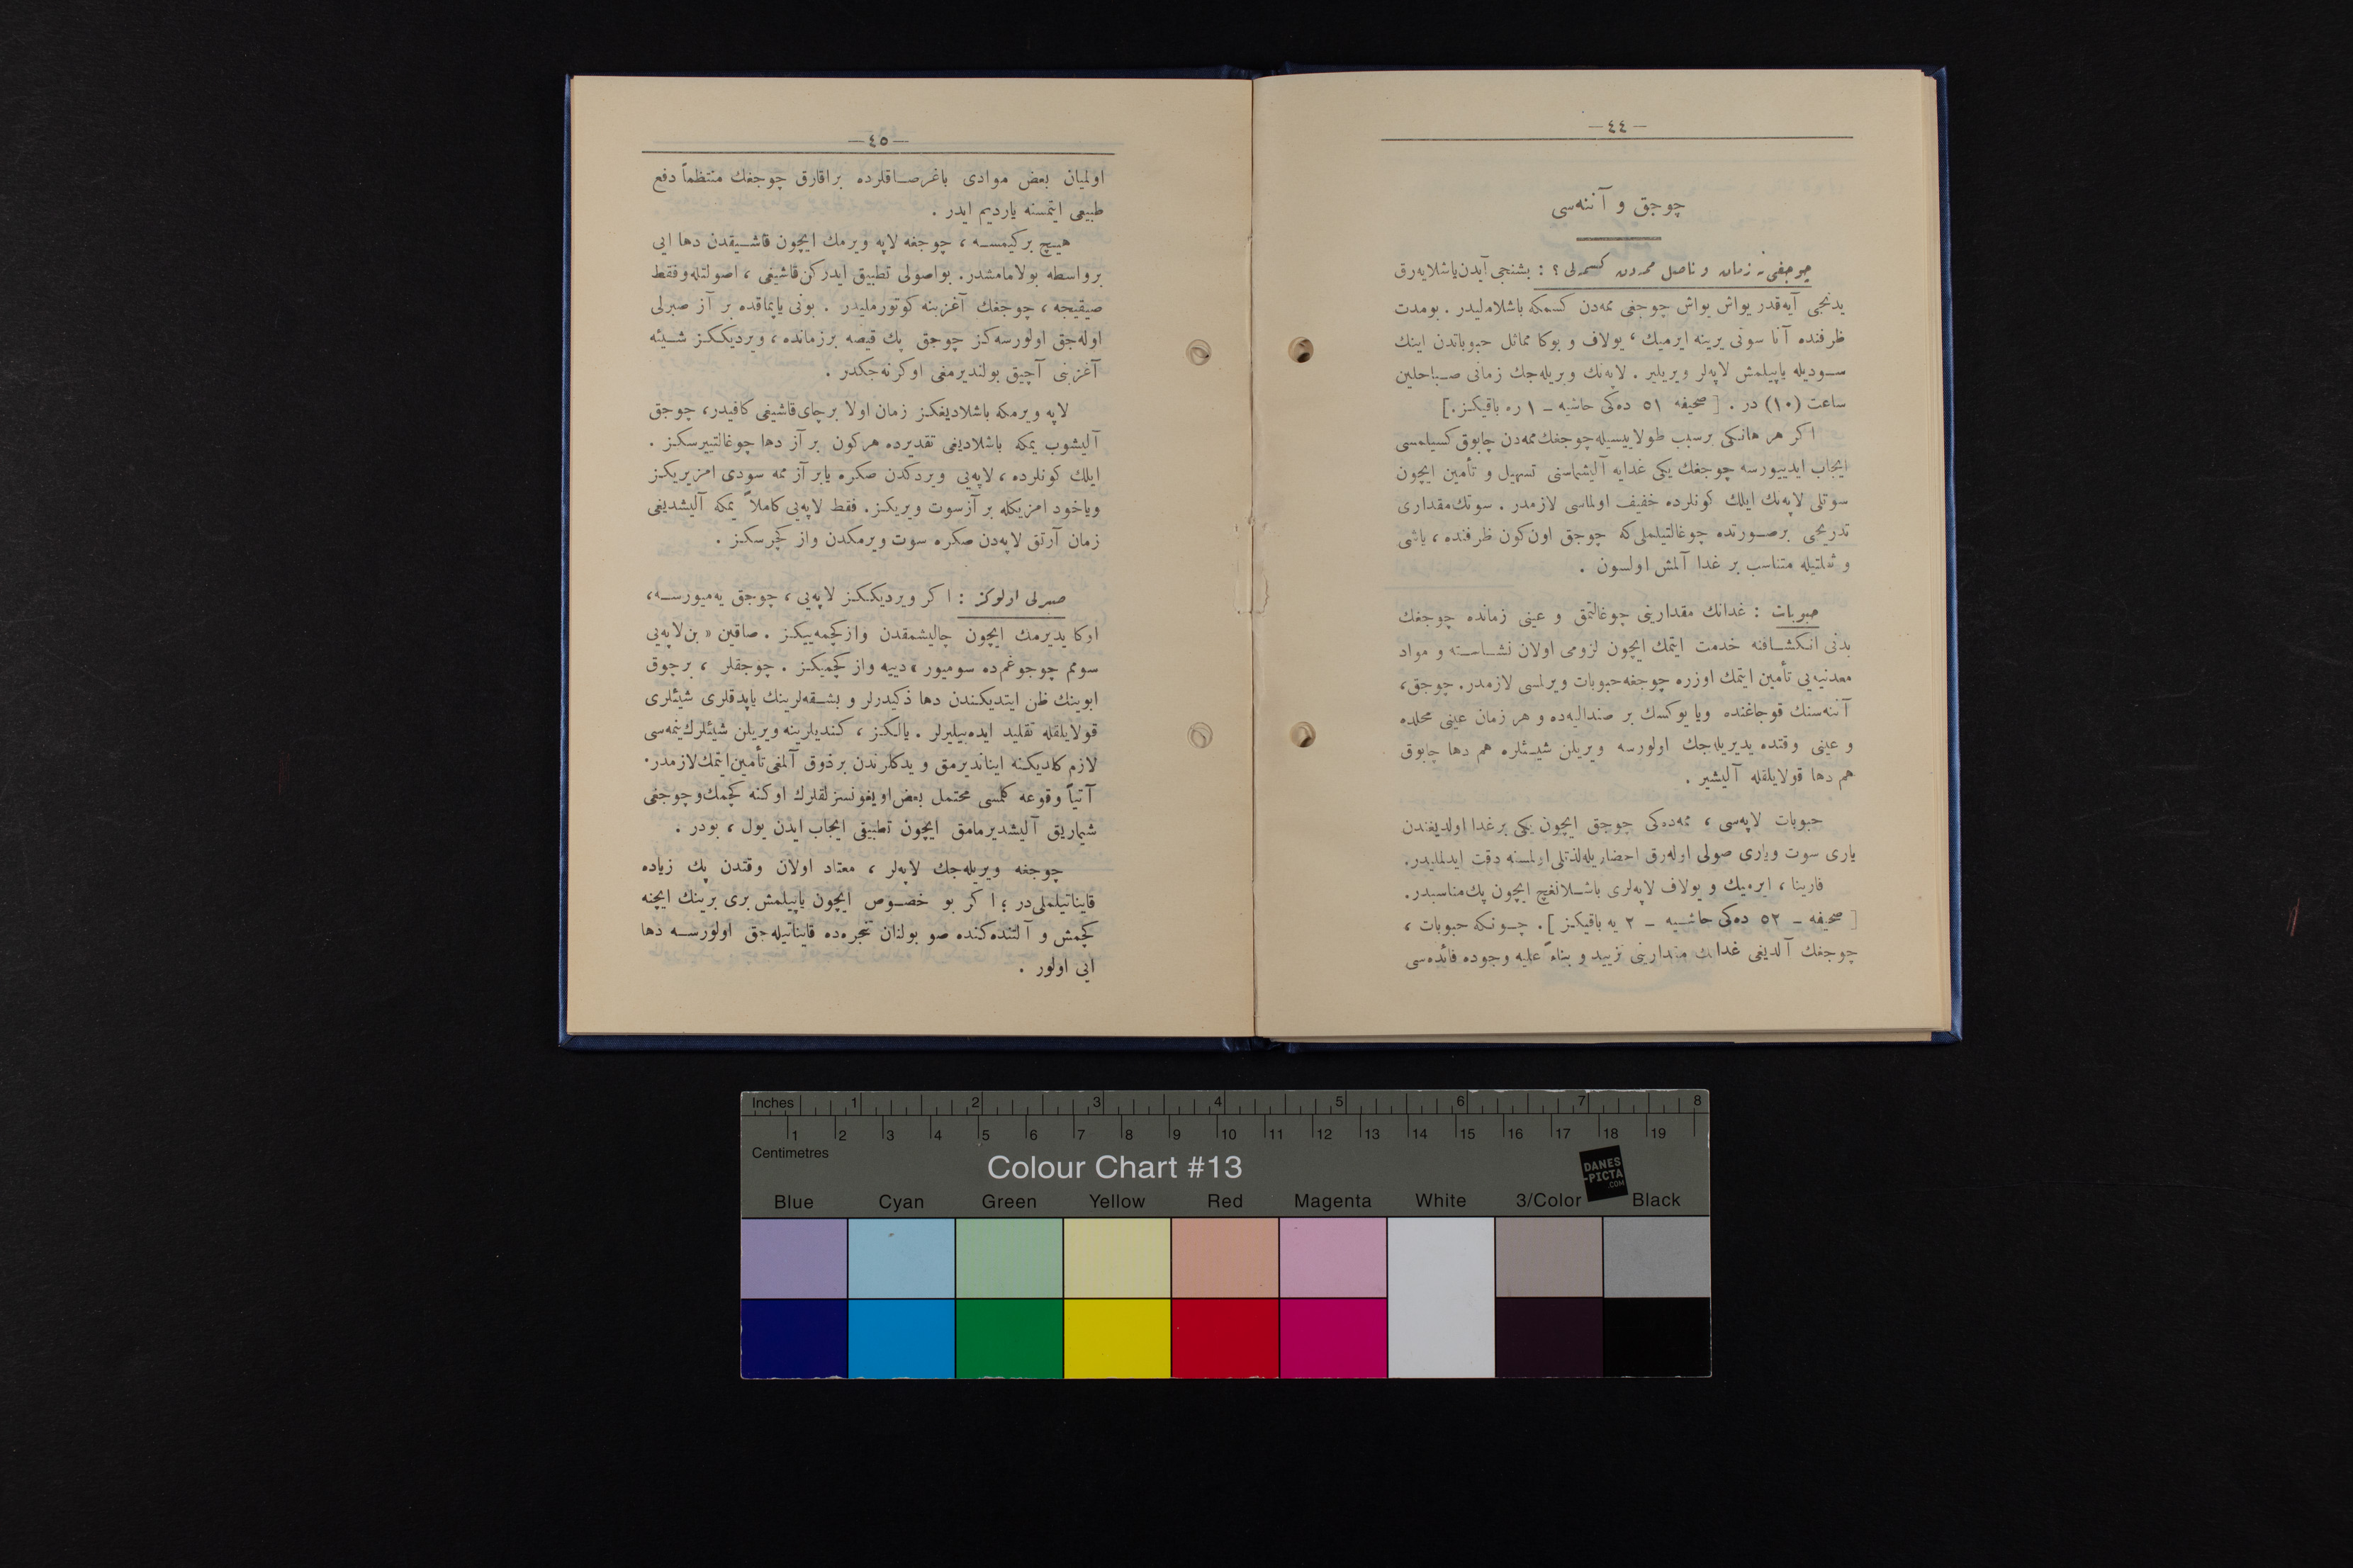 —٤٤—
چوجق و آننه‌سی
چوجغی نه زمان و ناصل ممه‌دن کسمه‌لی ؟ : بشنجی آیدن یاشلایه‌رق
یدنجی آیه قدر یواش یواش چوجغی ممه‌دن کسمکه باشلاملیدر . بومدت
ظرفنده آنا سوتی یرینه ایرمیك ، یولاف و بوکا مماثل حبوباتدن اینك
سـودیله یاپیلمش لاپه‌لر ویریلیر . لاپه‌نك ویریله‌جك زمانی صـباحلین
ساعت (١٠) در . [ صحیفه ٥١ ده‌کی حاشیه ـ ١ ره باقیکز.]
اکر هر هانکی برسبب طولاییسیله چوجغك ممه‌دن چابوق کسیلمسی
ایجاب ایدییورسه چوجغك یکی غدایه آلیشماسنی تسهیل و تأمین ایچون
سوتلی لاپه‌نك ایلك کونلرده خفیف اولماسی لازمدر . سوتك مقداری
تدریجی برصـورتده چوغالتیلملی که چوجق اون کون ظرفنده ، یاشی
و ثقلتیله متناسب بر غدا آلمش اولسون .
حبوبات : غدانك مقدارینی چوغالتمق و عینی زمانده چوجغك
بدنی انکشـافنه خدمت ایتمك ایچون لزومی اولان نشـاسته و مواد
معدنیه‌یی تأمین ایتمك اوزره چوجغه حبوبات ویرلمسی لازمدر. چوجق،
آننه‌سنك قوجاغنده ویا یوکسك بر صندالیه‌ده و هر زمان عینی محلده
و عینی وقتده یدیریله‌جك اولورسه ویریلن شیـئلره هم دها چابوق
هم دها قولایلقله آلیشیر .
حبوبات لاپه‌سی ، ممه‌ده‌کی چوجق ایچون یکی برغدا اولدیغندن
یاری سوت ویاری صولی اوله‌رق احضاریله لذتلی اولمسنه دقت ایدلملیدر.
فارینا ، ایرمیك و یولاف لاپه‌لری باشـلانغیچ ایچون پك مناسبدر.
[ صحیفه ـ ٥٢ ده‌کی حاشـیه ـ ٢ یه باقیکز ]. چـونکه حبوبات ،
چوجغك آلدیغی غدانك مقدارینی تزیید و بناءً علیه وجوده فائده‌سی
—٤٥—
اولمیان بعض موادی باغرصـاقلرده براقارق چوجغك منتظماً دفع
طبیعی ایتمسنه یاردیم ایدر .
هیـچ برکیمسـه ، چوجغه لاپه ویرمك ایچون قاشـیقدن دها ایی
برواسطه بولامامشدر. بواصولی تطبیق ایدرکن قاشیغی ، اصولتله وفقط
صیقیجه ، چوجغك آغزینه کوتورملیدر . بونی یاپماقده بر آز صبرلی
اوله‌جق اولورسه‌کز چوجق پك قیصه برزمانده ، ویردیککـز شـیئه
آغزینی آچیق بولندیرمغی اوکرنه‌جکدر .
لاپه ویرمکه باشلادیغکز زمان اولا برچای قاشیغی کافیدر، چوجق
آلیشوب یمکه باشلادیغی تقدیرده هرکون بر آز دها چوغالتییرسکز .
ایلك کونلرده ، لاپه‌یی ویردکدن صکره یابر آز ممه سودی امزیریکز
ویاخود امزیکله بر آزسوت ویریکز. فقط لاپه‌یی کاملاً یمکه آلیشدیغی
زمان آرتق لاپه‌دن صکره سوت ویرمکدن واز کچرسکز .
صبرلی اولوکز : اکر ویردیککـز لاپه‌یی ، چوجق یه‌میورسـه،
اوکا یدیرمك ایچون چالیشمقدن وازکچمه‌ییکز . صاقین « بن لاپه‌یی
سومم چوجوغم ده سومیور ، دییه واز کچمیکز . چوجقلر ، برچوق
ابوینك ظن ایتدیکندن دها ذکیدرلر و بشـقه‌لرینك یاپدقلری شیئلری
قولایلقله تقلید ایده‌بیلیرلر . یالکز ، کندیلرینه ویریلن شیئلرك ینمه‌سی
لازم کلدیکنه ایناندیرمق و یدکلرندن برذوق آلمغی تأمین ایتمك لازمدر.
آتیاً وقوعه کلمسی محتمل بعض اویغونسزلقلرك اوکنه کچمك و چوجغی
شیماریق آلیشدیرمامق ایچون تطبیقی ایجاب ایدن یول ، بودر .
چوجغه ویریله‌جك لاپه‌لر ، معتاد اولان وقتدن پك زیاده
قایناتیلملی‌در ؛ اکر بو خصـوص ایچون یاپیلمش بری برینك ایچنه
کچمش و آلتنده‌کنده صو بولنان تنجره‌ده قایناتیله‌جق اولورسـه دها
ایی اولور .
Inches 1 2 3 4 5 6 7 8
1 2 3 4 5 6 7 8 9 10 11 12 13 14 15 16 17 18 19
Centimetres
Colour Chart #13
DANES
-PICTA
.COM
Blue Cyan Green Yellow Red Magenta White 3/Color Black